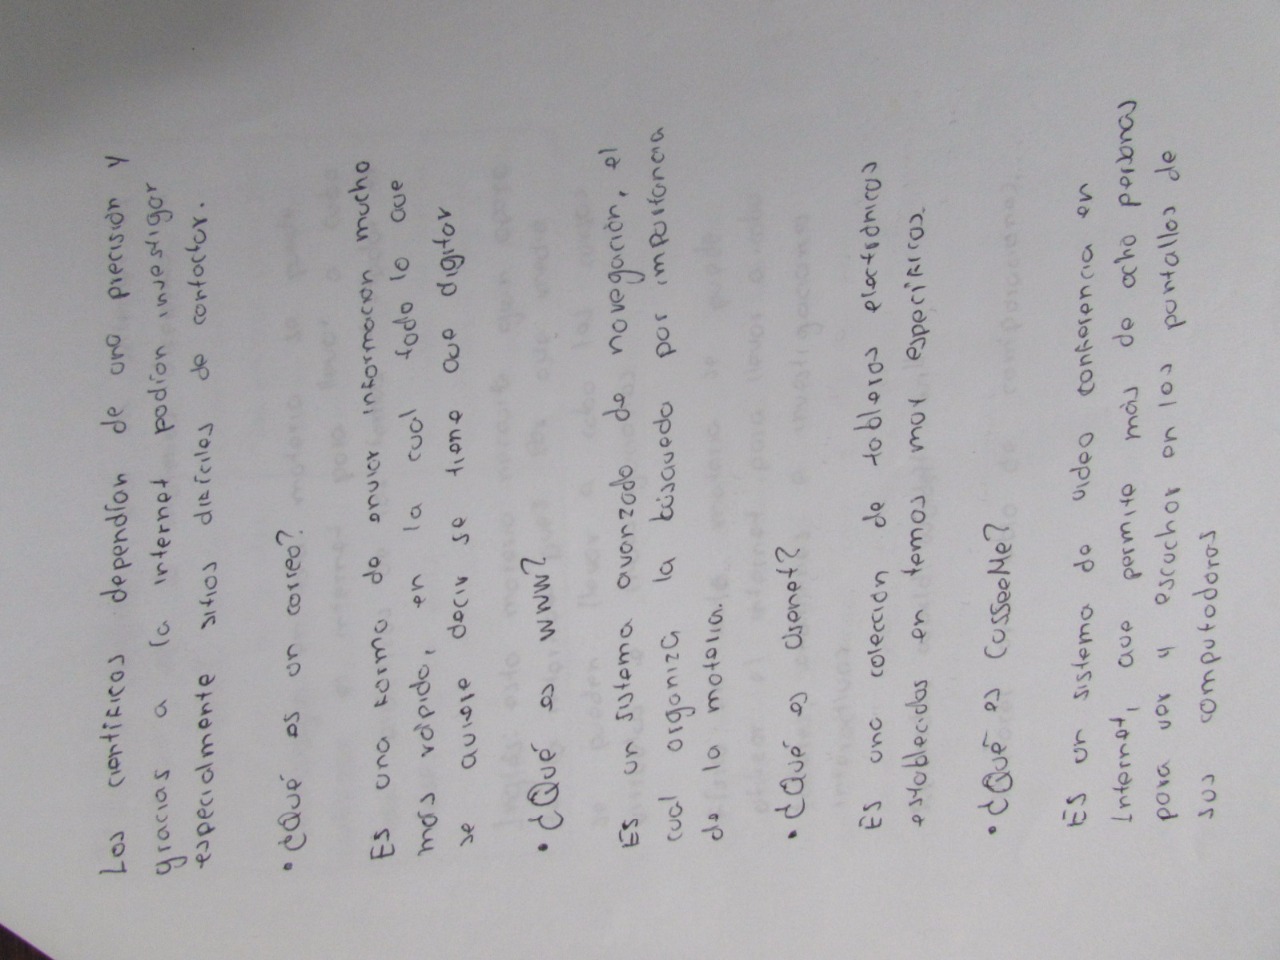 Los cientificos dependían de una precisión y
gracias a la internet podían investigar
especialmente sitios difíciles de contactar.
• ¿Qué es un correo?
Es una forma de enviar informacion mucho
más rápido, en la cual todo lo que
se quiere decir se tiene que digitar
• ¿Qué es WWW?
Es un sistema avanzado de navegación, el
cual organiza la búsqueda por importancia
de la materia.
• ¿Qué es Usenet?
Es una colección de tableros electrónicos
establecidos en temas muy específicos.
• ¿Qué es CusSeeMe?
Es un sistema de video conferencia en
Internet, que permite más de ocho personas
para ver y escuchar en las pantallas de
sus computadoras